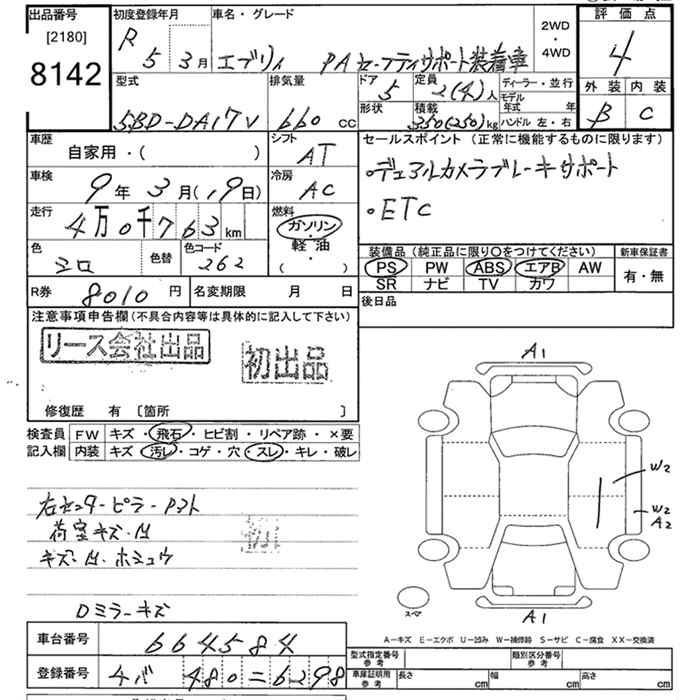 出品番号 [2180] 8142
初度登録年月 R 5年 3月
車名・グレード エブリイ PA セーフティサポート装着車
2WD・4WD
評価点 4
外装 B 内装 C
型式 5BD-DA17V
排気量 660 cc
ドア 5 定員 2(4)人
形状 積載 350(250)kg
ディーラー・並行
モデル年式 年
ハンドル 左・右
車歴 自家用・( )
シフト AT
セールスポイント (正常に機能するものに限ります)
・デュアルカメラブレーキサポート
・ETC
車検 9年 3月(19日)
冷房 AC
走行 4万0千763km
燃料 ガソリン・軽油・( )
色 シロ 色替 色コード 262
装備品 (純正品に限り○をつけてください) 新車保証書
PS PW ABS エアB AW 有・無
SR ナビ TV カワ
R券 8010円 名変期限 月 日
後日品
注意事項申告欄 (不具合内容等は具体的に記入して下さい)
リース会社出品 初出品
修復歴 有 [箇所 ]
検査員 FW キズ・飛石・ヒビ割・リペア跡・×要
記入欄 内装 キズ・汚レ・コゲ・穴・スレ・キレ・破レ
右センターピラーアウト
荷室キズ・凹
キズ・凹・ホシュウ
Dミラーキズ
A1
W2
W2
A2
スペア
A1
A-キズ E-エクボ U-凹み W-補修跡 S-サビ C-腐食 XX-交換済
車台番号 664584
型式指定番号 参考 類別区分番号 参考
登録番号 480 = 6298
車庫証明用 参考 長さ cm 幅 cm 高さ cm